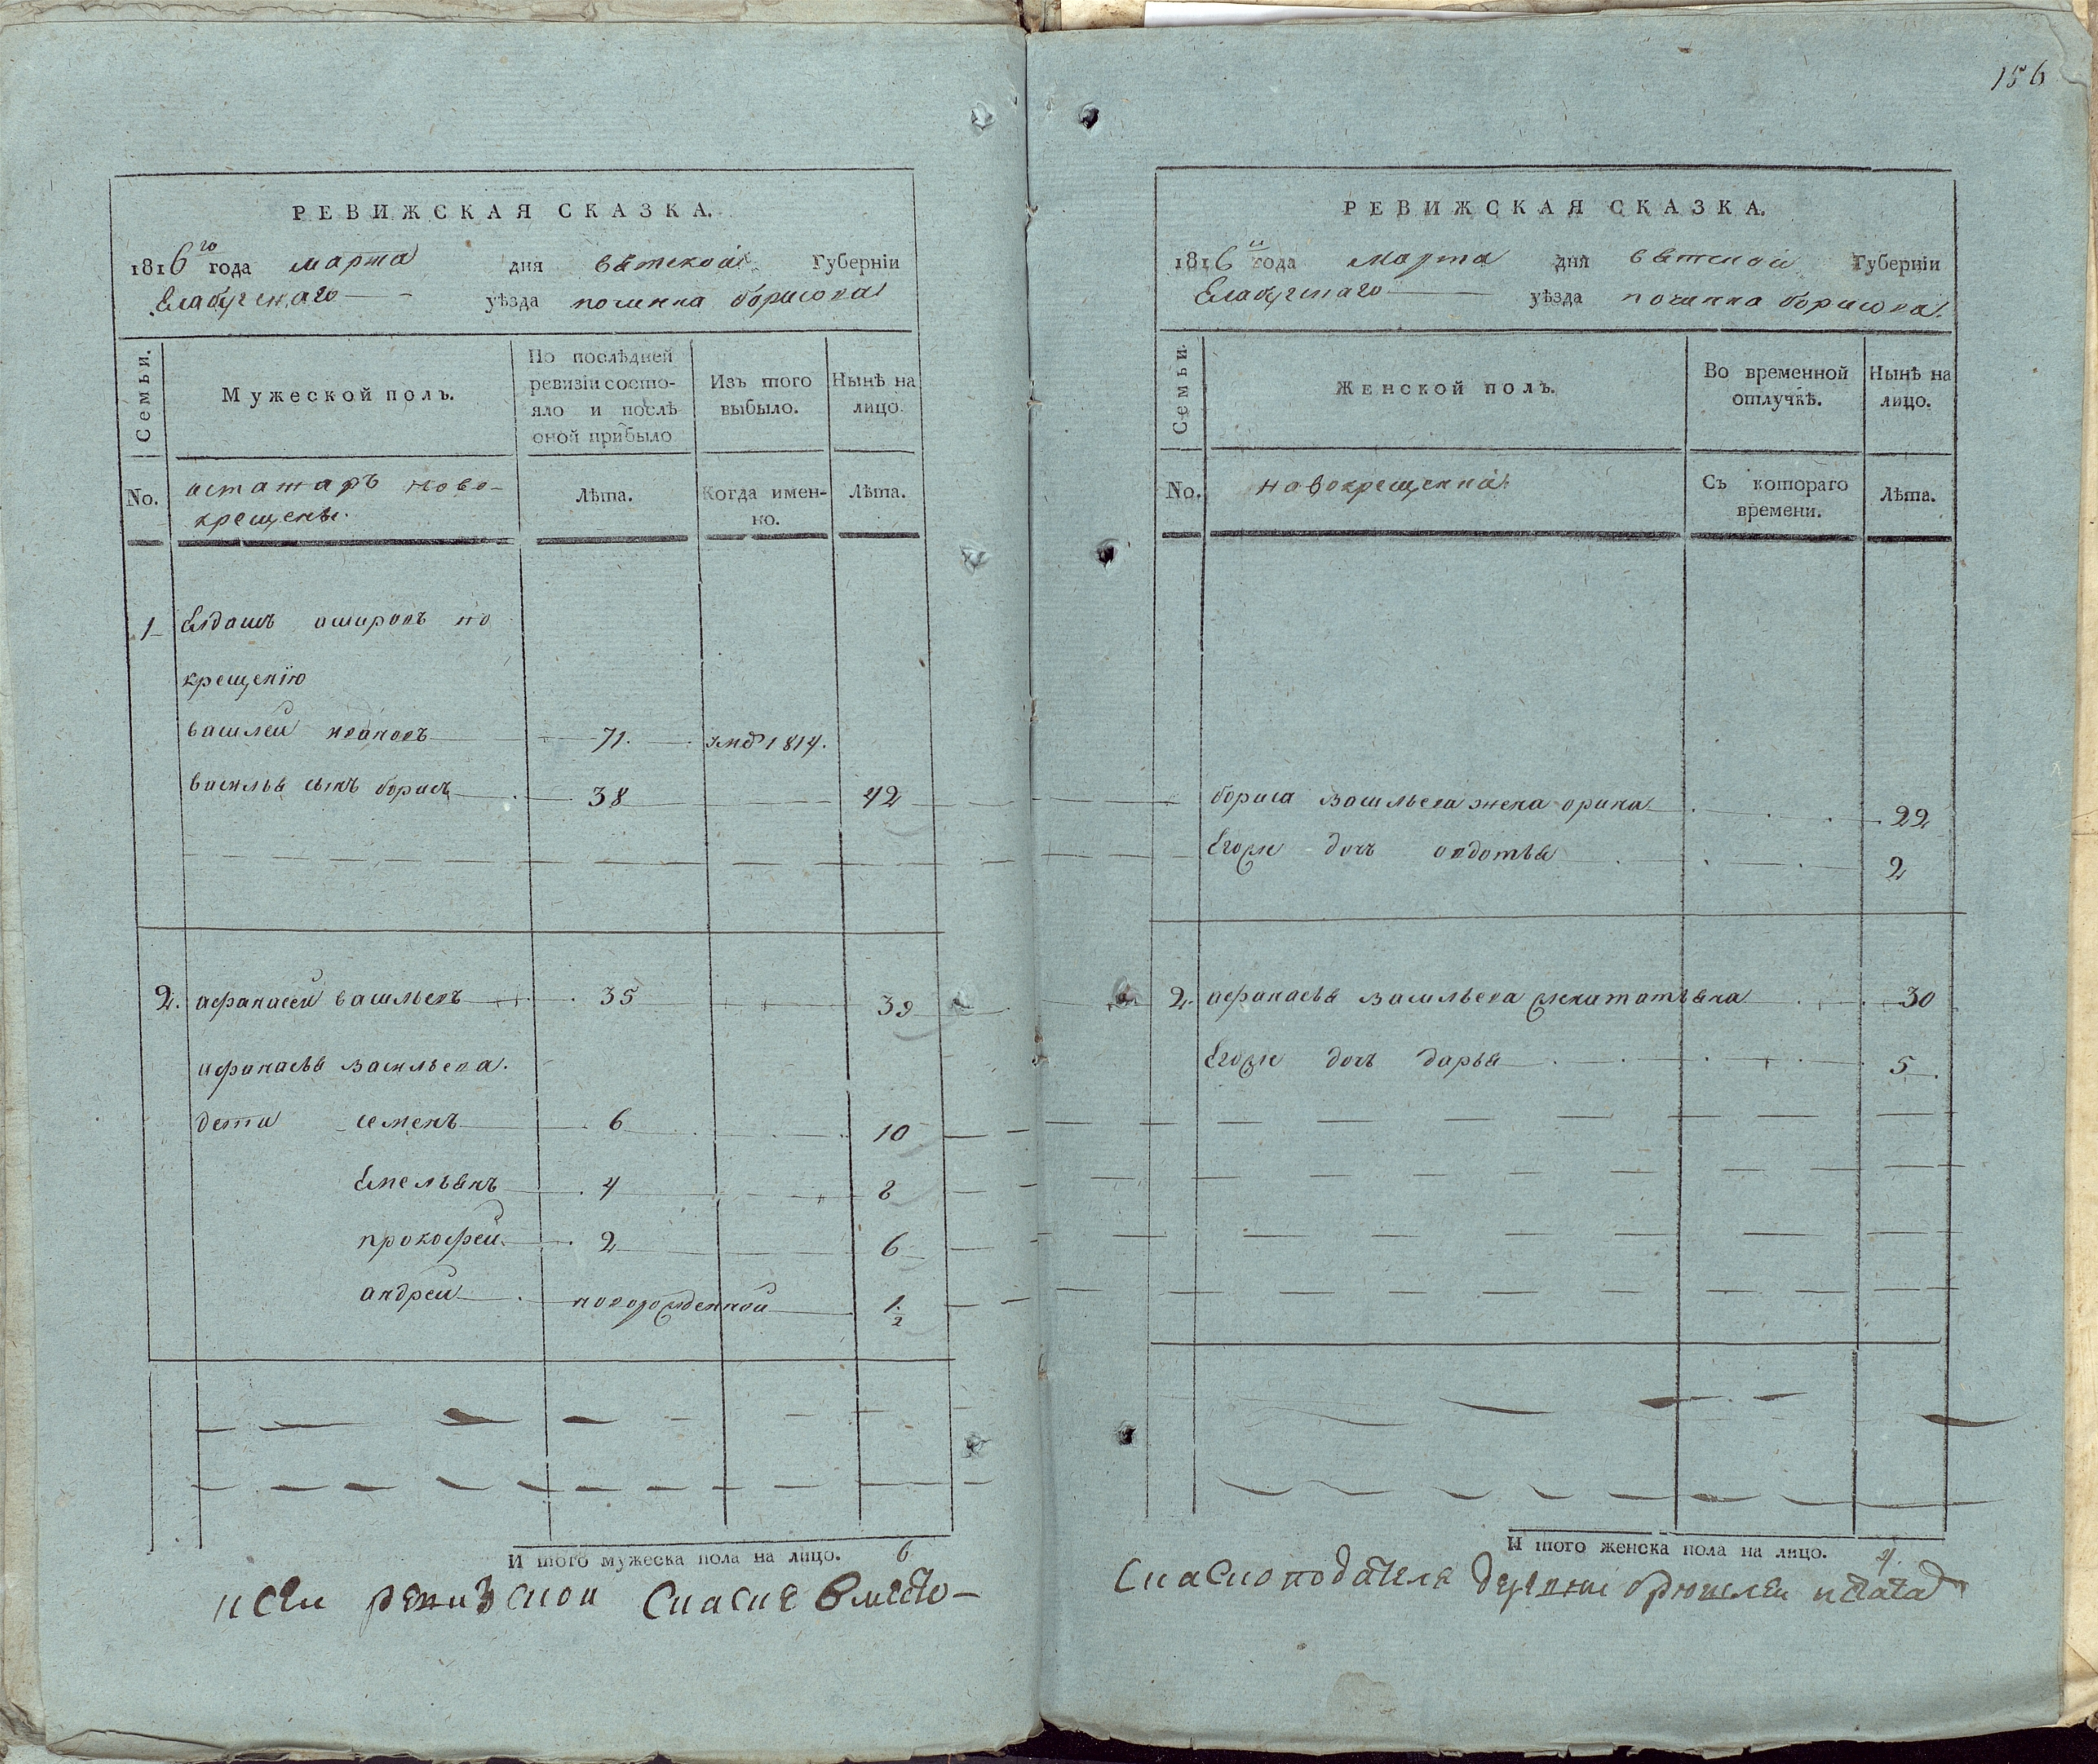 РЕВИЖСКАЯ СКАЗКА.
1816го года марта дня вятской Губернїи
Елабугскаго уѣзда починка борисова
Семьи.
Мужеской полъ.
По послѣдней
ревизїи состо-
яло и послѣ
оной прибыло
Изъ того
выбыло.
Нынѣ на
лицо.
No.
истатаръ ново-
крещены.
Лѣта.
Когда имен-
но.
Лѣта.
1 Елдашъ по
крещенїю
василей ивановъ 71. 1814.
василья сынъ борисъ 38 42
2. афанасей васильевъ 35 39
афанасья васильева.
дети семенъ 6 10
Емельянъ 4 8
прокофей 2 6
андрей новорожденной 1/2
И того мужеска пола на лицо. 6
ксей ревизской скаске вместо-
156
РЕВИЖСКАЯ СКАЗКА.
1816 года марта дня вятской Губернїи
Елабугскаго уѣзда починка борисова.
Семьи.
Женской полъ.
Во временной
отлучкѣ.
Нынѣ на
лицо.
No.
новокрещенна
Съ котораго
времени.
Лѣта.
бориса васильева жена орина 22
Егожъ дочь овдотья 2
2. афанасья васильева жена татьяна 30
Егожъ дочь дарья 5
И того женска пола на лицо. 4.
скаскоподателя деревни